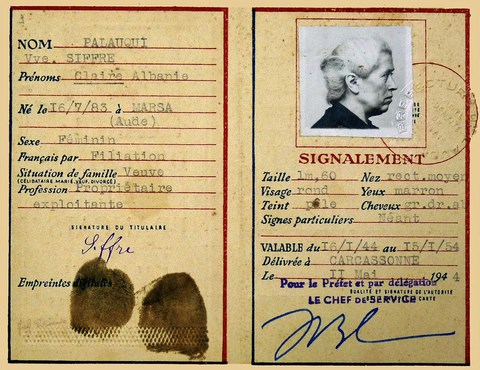 NOM PALAUQUI
Vve. SIFFRE
Prénoms Claire Albanie
Né le 16/7/83 à MARSA
(Aude)
Sexe Féminin
Français par Filiation
Situation de famille Veuve
(CÉLIBATAIRE, MARIÉ, VEUF, DIVORCÉ)
Profession Propriétaire
exploitante
SIGNATURE DU TITULAIRE
Siffre
Empreintes digitales
SIGNALEMENT
Taille 1m,60 Nez rect.moyen
Visage rond Yeux marron
Teint pâle Cheveux gr.dr.ab
Signes particuliers Néant
VALABLE du 16/I/44 au 15/I/54
Délivrée à CARCASSONNE
Le II Mai 1944
Pour le Préfet et par délégation
QUALITÉ ET SIGNATURE DE L'AUTORITÉ
LE CHEF de SERVICE
CARTE